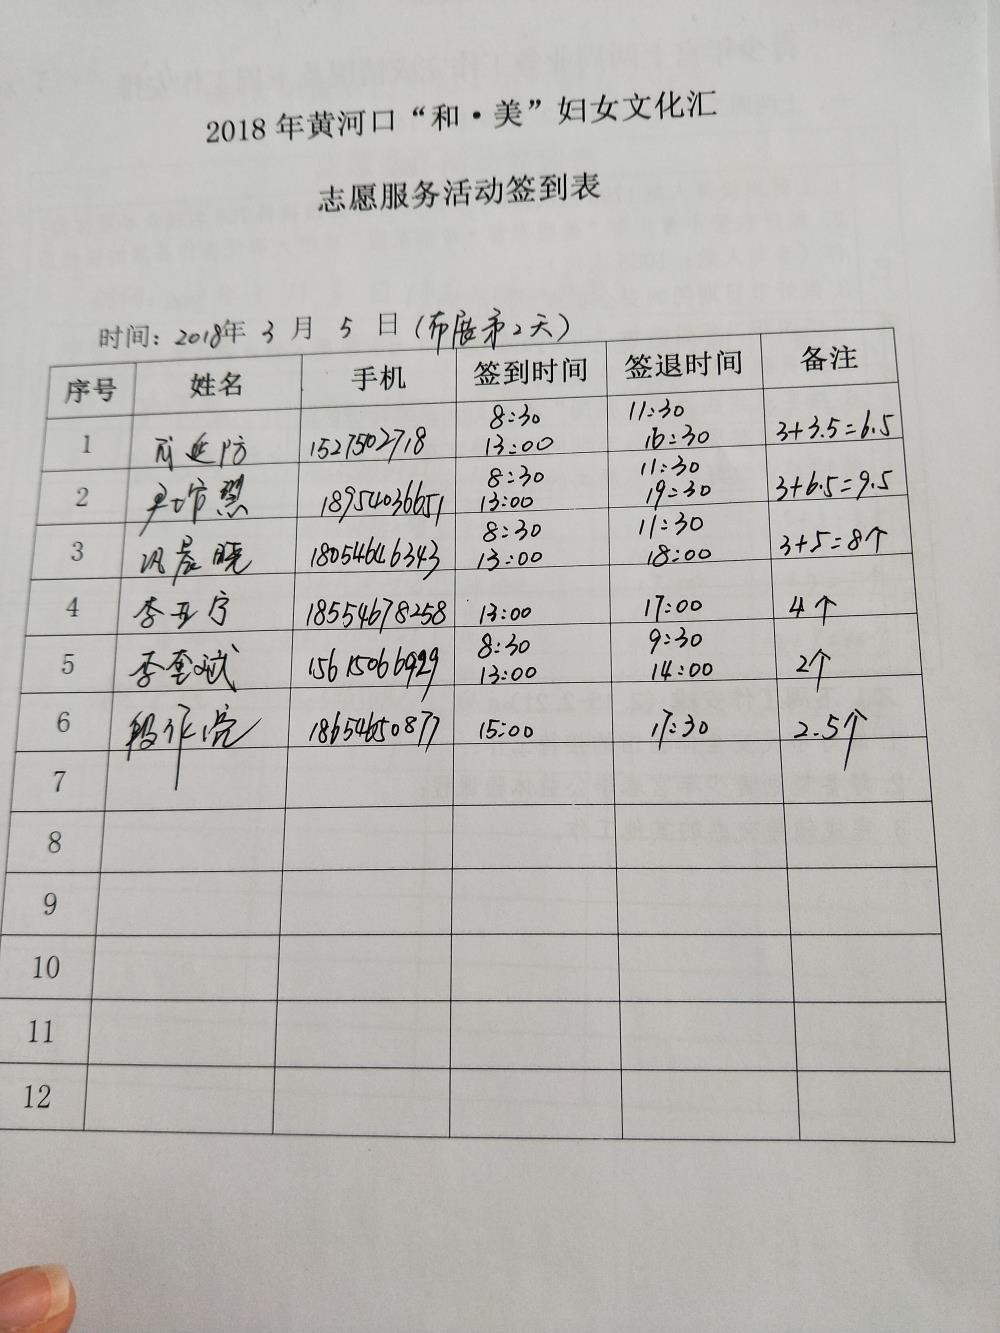 2018年黄河口“和·美”妇女文化汇
志愿服务活动签到表
时间：2018年 3 月 5 日（布展第2天）
序号 姓名 手机 签到时间 签退时间 备注
8:30 11:30
1 1527502718 13:00 16:30 3+3.5=6.5
8:30 11:30
2 18954036651 13:00 19:30 3+6.5=9.5
8:30 11:30
3 晨晓 18054646343 13:00 18:00 3+5=8个
4 李亚宁 18554678258 13:00 17:00 4个
8:30 9:30
5 李奎斌 15615066929 13:00 14:00 2个
6 段作亮 18654650877 15:00 17:30 2.5个
7
8
9
10
11
12